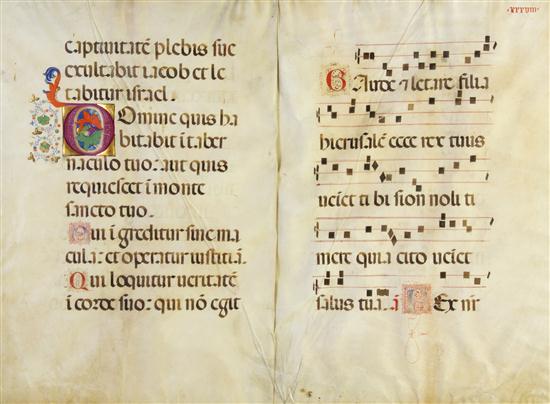 captiuitatē plebis sue
exultabit iacob et le
tabitur israel.
Domine quis ha
bitabit ī taber
naculo tuo. aut quis
requiescet ī monte
sancto tuo.
Qui īgreditur sine ma
cula. et operatur iustitiā.
Qui loquitur ueritatē
ī corde suo. qui nō egit
Gaude ⁊ letare filia
hierusalē ecce rex tuus
ueniet tibi sion noli ti
mere quia cito ueniet
salus tua.